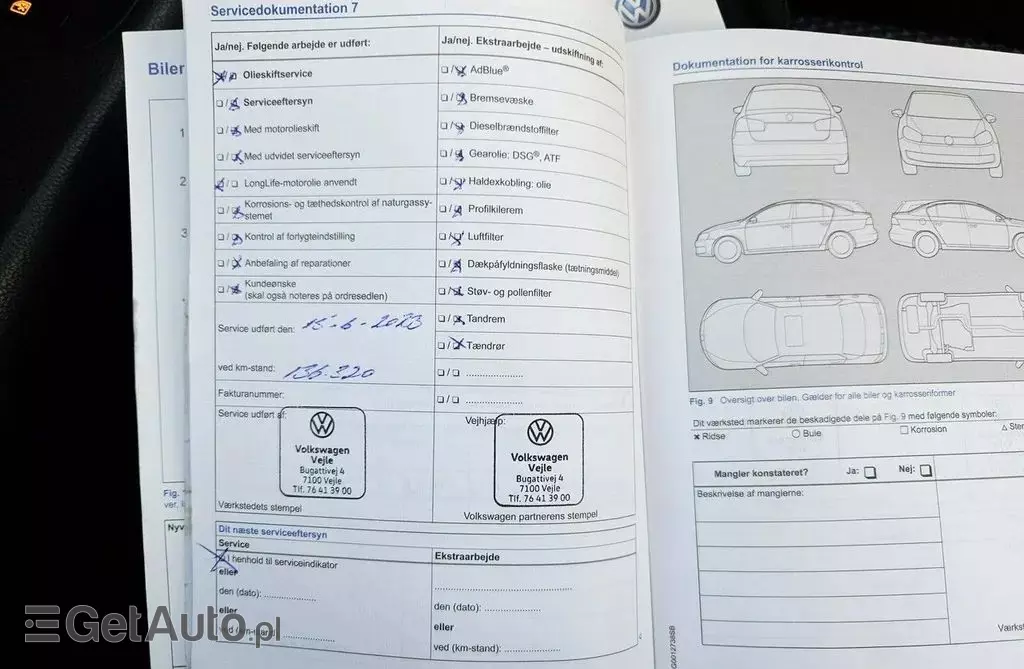 Servicedokumentation 7
Ja/nej. Følgende arbejde er udført:
Olieskiftservice
Serviceeftersyn
Med motorolieskift
Med udvidet serviceeftersyn
LongLife-motorolie anvendt
Korrosions- og tæthedskontrol af naturgassy-
stemet
Kontrol af forlygteindstilling
Anbefaling af reparationer
Kundeønske
(skal også noteres på ordresedlen)
Service udført den: 15-6-2023
ved km-stand: 136.320
Fakturanummer:
Service udført af:
Volkswagen
Vejle
Bugattivej 4
7100 Vejle
Tlf. 76 41 39 00
Værkstedets stempel
Ja/nej. Ekstraarbejde – udskiftning af:
AdBlue®
Bremsevæske
Dieselbrændstoffilter
Gearolie: DSG®, ATF
Haldexkobling: olie
Profilkilerem
Luftfilter
Dækpåfyldningsflaske (tætningsmiddel)
Støv- og pollenfilter
Tandrem
Tændrør
Vejhjælp:
Volkswagen
Vejle
Bugattivej 4
7100 Vejle
Tlf. 76 41 39 00
Volkswagen partnerens stempel
Dit næste serviceeftersyn
Service
I henhold til serviceindikator
eller
den (dato):
eller
ved km-stand:
Ekstraarbejde
den (dato):
eller
ved (km-stand):
Biler
1
2
3
Fig.
ver. l
Nyv
Dokumentation for karrosserikontrol
Fig. 9 Oversigt over bilen. Gælder for alle biler og karrosseriformer
Dit værksted markerer de beskadigede dele på Fig. 9 med følgende symboler:
× Ridse
○ Bule
□ Korrosion
△ Sten
Mangler konstateret?
Ja:
Nej:
Beskrivelse af manglerne:
Værkst
GetAuto.pl